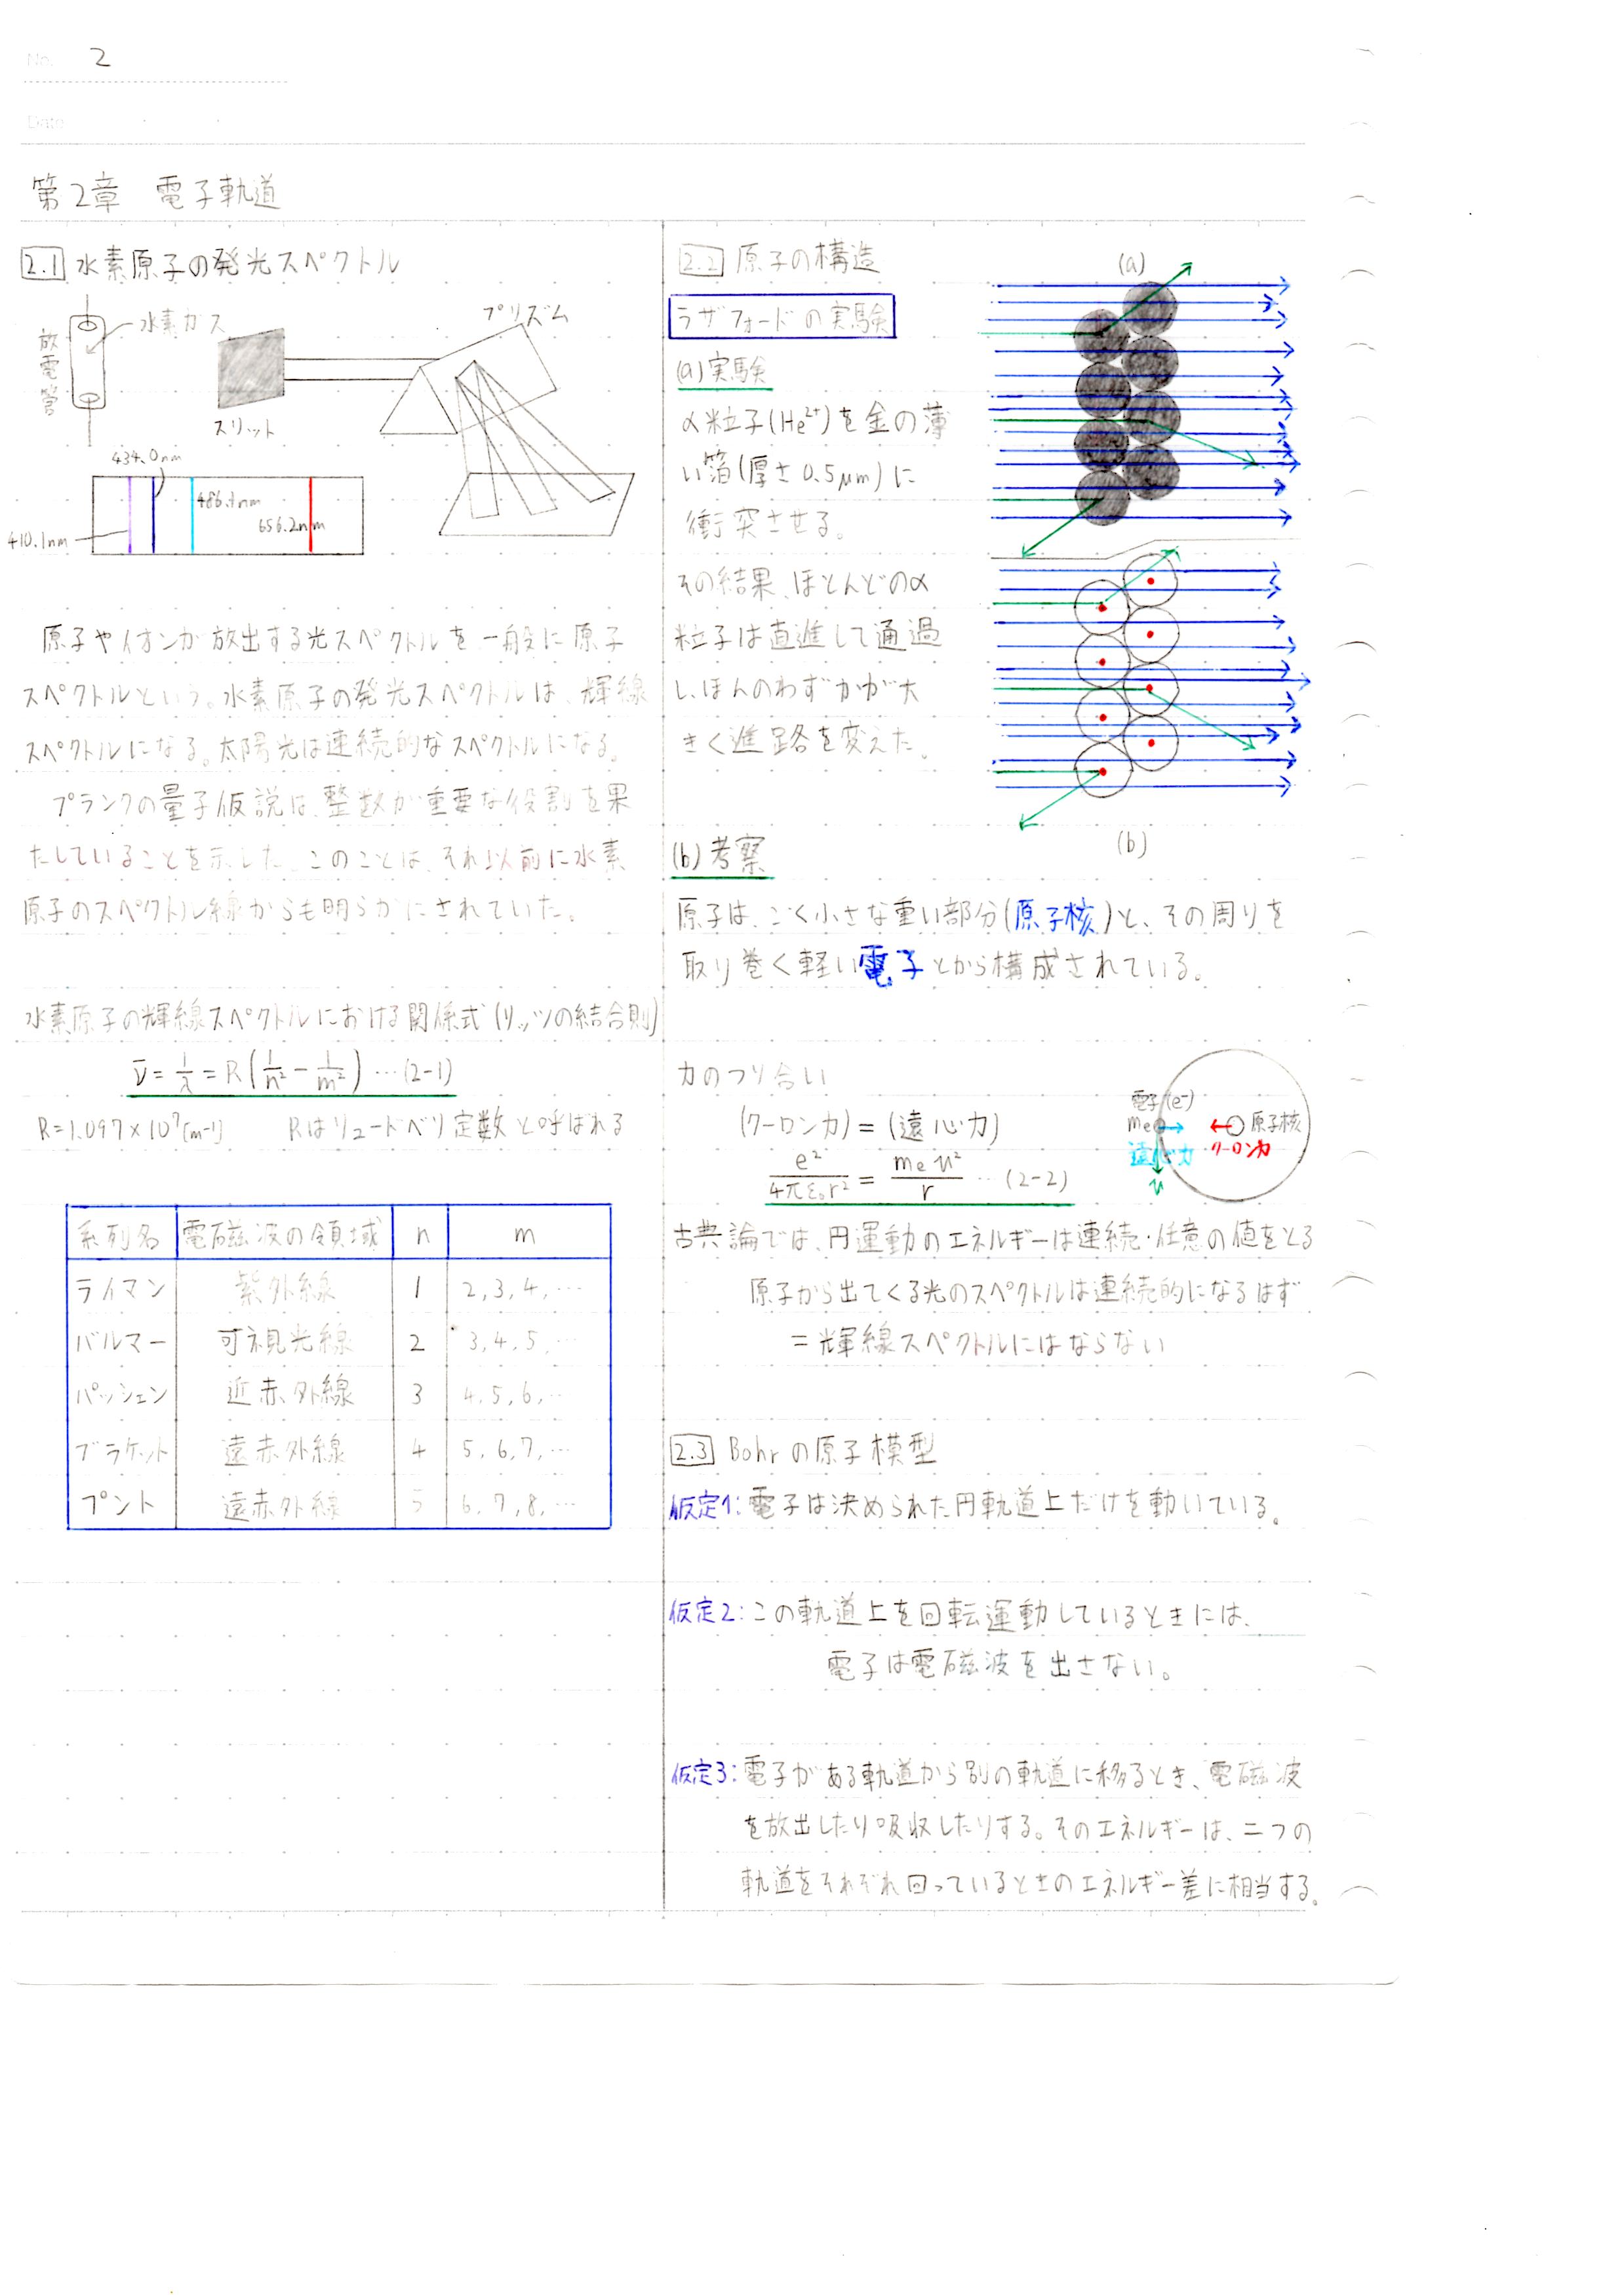 No. 2
Date
第2章 電子軌道
2.1 水素原子の発光スペクトル
放電管
水素ガス
スリット
プリズム
434.0nm
486.1nm
656.2nm
410.1nm
原子やイオンが放出する光スペクトルを一般に原子
スペクトルという。水素原子の発光スペクトルは、輝線
スペクトルになる。太陽光は連続的なスペクトルになる。
プランクの量子仮説は、整数が重要な役割を果
たしていることを示した。このことは、それ以前に水素
原子のスペクトル線からも明らかにされていた。
水素原子の輝線スペクトルにおける関係式(リッツの結合則)
ν̄ = 1/λ = R(1/n² − 1/m²) …(2-1)
R=1.097×10⁷[m-1] Rはリュードベリ定数と呼ばれる
系列名 電磁波の領域 n m
ライマン 紫外線 1 2,3,4,…
バルマー 可視光線 2 3,4,5,…
パッシェン 近赤外線 3 4,5,6,…
ブラケット 遠赤外線 4 5,6,7,…
プント 遠赤外線 5 6,7,8,…
2.2 原子の構造
ラザフォードの実験
(a)実験
α粒子(He²⁺)を金の薄
い箔(厚さ0.5μm)に
衝突させる。
その結果、ほとんどのα
粒子は直進して通過
し、ほんのわずかが大
きく進路を変えた。
(a)
(b)
(b)考察
原子は、ごく小さな重い部分(原子核)と、その周りを
取り巻く軽い電子とから構成されている。
力のつり合い
(クーロン力)=(遠心力)
e²/4πε₀r² = me u²/r …(2-2)
電子(e⁻)
me
遠心力
u
原子核
クーロン力
古典論では、円運動のエネルギーは連続・任意の値をとる
原子から出てくる光のスペクトルは連続的になるはず
=輝線スペクトルにはならない
2.3 Bohrの原子模型
仮定1:電子は決められた円軌道上だけを動いている。
仮定2:この軌道上を回転運動しているときには、
電子は電磁波を出さない。
仮定3:電子がある軌道から別の軌道に移るとき、電磁波
を放出したり吸収したりする。そのエネルギーは、二つの
軌道をそれぞれ回っているときのエネルギー差に相当する。